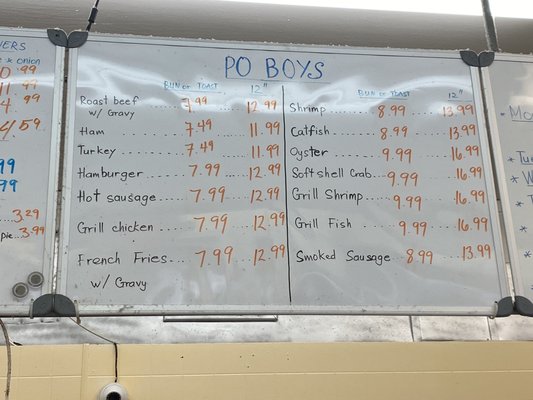 VERS
& onion
.99
.99
4 .99
4 59
99
99
3.29
pie...3.99
PO BOYS
BUN or TOAST 12"
Roast beef.......7.99.....12.99
w/ Gravy
Ham 7.49......11.99
Turkey 7.49.....11.99
Hamburger.......7.99.....12.99
Hot sausage....7.99...12.99
Grill chicken.....7.99....12.99
French Fries....7.99....12.99
w/ Gravy
BUN or TOAST 12"
Shrimp..........8.99......13.99
Catfish..........8.99......13.99
Oyster..........9.99......16.99
Soft shell Crab...9.99.....16.99
Grill Shrimp.....9.99.....16.99
Grill Fish.......9.99.....16.99
Smoked Sausage..8.99.....13.99